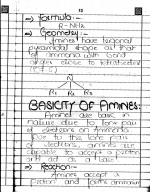 13
⇒ Formula:-
R-NH₂
⇒ Geometry:-
Amines have trigonal
pyramidal shape as that
of ammonia with bond
angles close to tetrahedral
N
R₁ R₂ R₃
BASICITY OF AMINES:
Amines are basic in
nature due to lone pair
electrons on Ammonia
Due to the lone pair
of electrons, amines are
capable to accept a proton
act as a base
⇒ Reaction:-
Amines accept a
Proton and forms ammonium